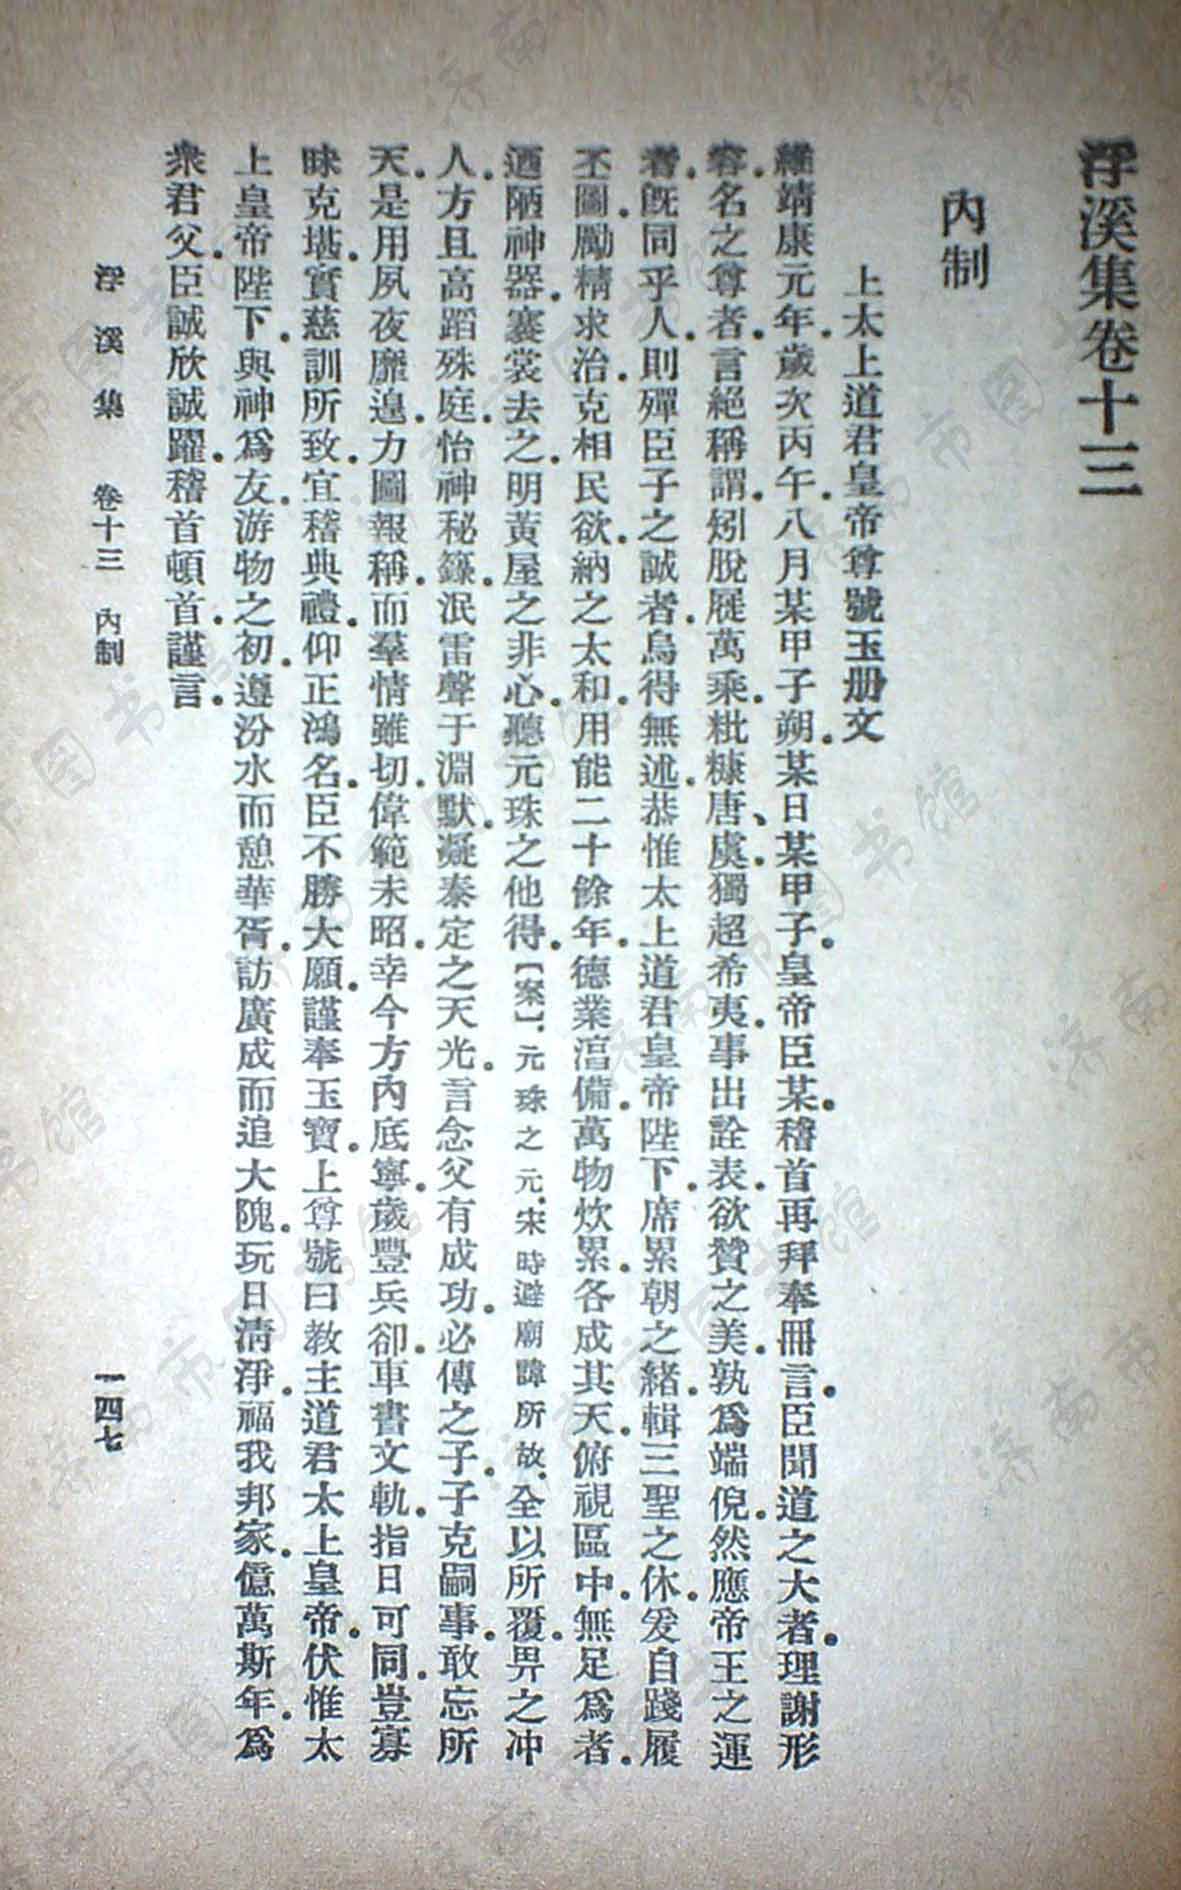 浮溪集卷十三
內制
上太上道君皇帝尊號玉册文
維靖康元年。歲次丙午。八月某甲子朔。某日某甲子。皇帝臣某。稽首再拜奉冊言。臣聞道之大者。理謝形
容。名之尊者。言絕稱謂。矧脫屣萬乘。粃糠唐、虞。獨超希夷。事出詮表。欲贊之美。孰爲端倪。然應帝王之運
者。旣同乎人。則殫臣子之誠者。烏得無述。恭惟太上道君皇帝陛下。席累朝之緒。輯三聖之休。爰自踐履
丕圖。勵精求治。克相民欲。納之太和。用能二十餘年。德業湻備。萬物炊累。各成其天。俯視區中。無足爲者。
迺陋神器。褰裳去之。明黃屋之非心。聽元珠之他得。【案】元珠之元、宋時避廟諱所故。全以所覆。畀之冲
人。方且高蹈殊庭。怡神秘籙。泯雷聲于淵默。凝泰定之天光。言念父有成功。必傳之子。子克嗣事。敢忘所
天。是用夙夜靡遑。力圖報稱。而羣情雖切。偉範未昭。幸今方內底寧。歲豐兵卻。車書文軌。指日可同。豈寡
昧克堪。實慈訓所致。宜稽典禮。仰正鴻名。臣不勝大願。謹奉玉寶。上尊號曰教主道君太上皇帝。伏惟太
上皇帝陛下。與神爲友。游物之初。遵汾水而憩華胥。訪廣成而追大隗。玩日清淨。福我邦家。億萬斯年。爲
衆君父。臣誠欣誠躍。稽首頓首。謹言。
浮溪集 卷十三 內制
一四七